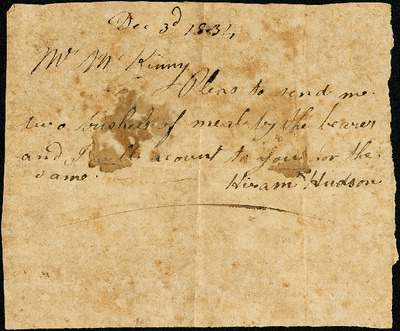 Dec 3d 1834,
Mr McKinny
Pleas to send me
two bushels of meal by the bearer
and I will acount to you for the
same.
Hiram Hudson